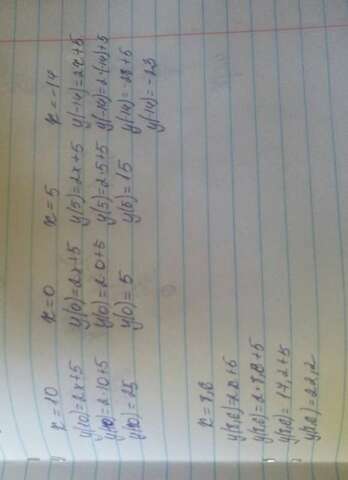 x = 10
y(10) = 2x + 5
y(10) = 2·10 + 5
y(10) = 25
x = 0
y(0) = 2x + 5
y(0) = 2·0 + 5
y(0) = 5
x = 5
y(5) = 2x + 5
y(5) = 2·5 + 5
y(5) = 15
x = -14
y(-14) = 2x + 5
y(-14) = 2·(-14) + 5
y(-14) = -28 + 5
y(-14) = -23
x = 8,6
y(8,6) = 2x + 5
y(8,6) = 2·8,6 + 5
y(8,6) = 17,2 + 5
y(8,6) = 22,2